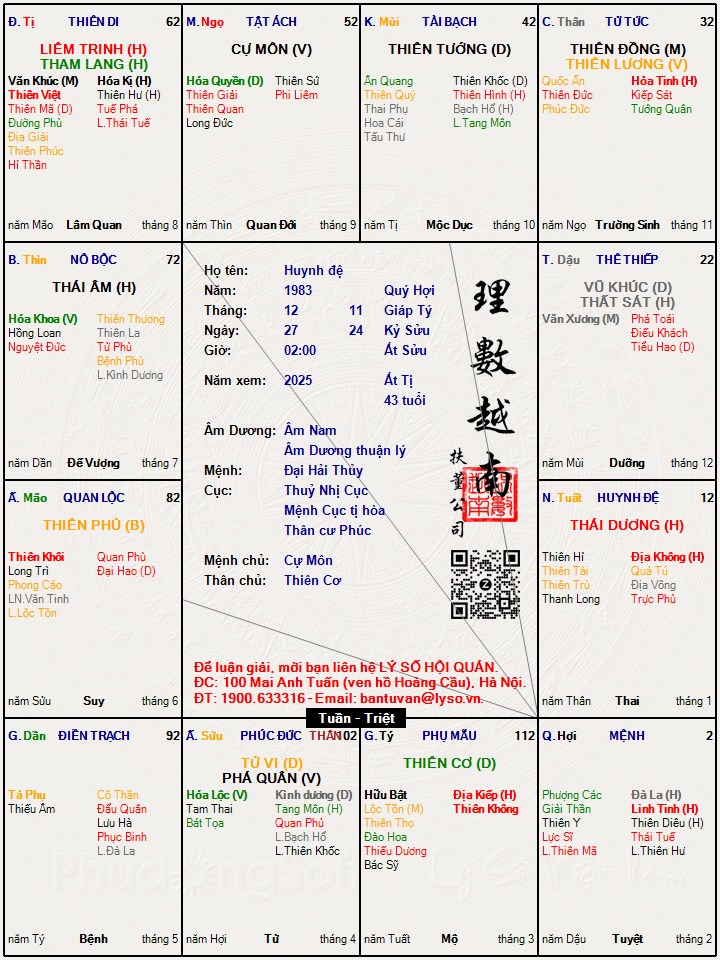 Đ. Tị THIÊN DI 62
LIÊM TRINH (H)
THAM LANG (H)
Văn Khúc (M) Hóa Kị (H)
Thiên Việt Thiên Hư (H)
Thiên Mã (D) Tuế Phá
Đường Phù L.Thái Tuế
Địa Giải
Thiên Phúc
Hỉ Thần
năm Mão Lâm Quan tháng 8
M. Ngọ TẬT ÁCH 52
CỰ MÔN (V)
Hóa Quyền (D) Thiên Sứ
Thiên Giải Phi Liêm
Thiên Quan
Long Đức
năm Thìn Quan Đới tháng 9
K. Mùi TÀI BẠCH 42
THIÊN TƯỚNG (D)
Ân Quang Thiên Khốc (D)
Thiên Quý Thiên Hình (H)
Thai Phụ Bạch Hổ (H)
Hoa Cái L.Tang Môn
Tấu Thư
năm Tị Mộc Dục tháng 10
C. Thân TỬ TỨC 32
THIÊN ĐỒNG (M)
THIÊN LƯƠNG (V)
Quốc Ấn Hỏa Tinh (H)
Thiên Đức Kiếp Sát
Phúc Đức Tướng Quân
năm Ngọ Trường Sinh tháng 11
B. Thìn NÔ BỘC 72
THÁI ÂM (H)
Hóa Khoa (V) Thiên Thương
Hồng Loan Thiên La
Nguyệt Đức Tử Phù
Bệnh Phù
L.Kình Dương
năm Dần Đế Vượng tháng 7
Họ tên: Huynh đệ
Năm: 1983 Quý Hợi
Tháng: 12 11 Giáp Tý
Ngày: 27 24 Kỷ Sửu
Giờ: 02:00 Ất Sửu
Năm xem: 2025 Ất Tị
43 tuổi
Âm Dương: Âm Nam
Âm Dương thuận lý
Mệnh: Đại Hải Thủy
Cục: Thuỷ Nhị Cục
Mệnh Cục tị hòa
Thân cư Phúc
Mệnh chủ: Cự Môn
Thân chủ: Thiên Cơ
理數越南
扶董公司
Để luận giải, mời bạn liên hệ LÝ SỐ HỘI QUÁN.
ĐC: 100 Mai Anh Tuấn (ven hồ Hoàng Cầu), Hà Nội.
ĐT: 1900.633316 - Email: bantuvan@lyso.vn.
Tuần - Triệt
T. Dậu THÊ THIẾP 22
VŨ KHÚC (D)
THẤT SÁT (H)
Văn Xương (M) Phá Toái
Điếu Khách
Tiểu Hao (D)
năm Mùi Dưỡng tháng 12
Ấ. Mão QUAN LỘC 82
THIÊN PHỦ (B)
Thiên Khôi Quan Phù
Long Trì Đại Hao (D)
Phong Cáo
LN.Văn Tinh
L.Lộc Tồn
năm Sửu Suy tháng 6
N. Tuất HUYNH ĐỆ 12
THÁI DƯƠNG (H)
Thiên Hỉ Địa Không (H)
Thiên Tài Quả Tú
Thiên Trù Địa Võng
Thanh Long Trực Phù
năm Thân Thai tháng 1
G. Dần ĐIỀN TRẠCH 92
Tả Phụ Cô Thần
Thiếu Âm Đẩu Quân
Lưu Hà
Phục Binh
L.Đà La
năm Tý Bệnh tháng 5
Ấ. Sửu PHÚC ĐỨC THÂN 102
TỬ VI (D)
PHÁ QUÂN (V)
Hóa Lộc (V) Kình dương (D)
Tam Thai Tang Môn (H)
Bát Tọa Quan Phủ
L.Bạch Hổ
L.Thiên Khốc
năm Hợi Tử tháng 4
G. Tý PHỤ MẪU 112
THIÊN CƠ (D)
Hữu Bật Địa Kiếp (H)
Lộc Tồn (M) Thiên Không
Thiên Thọ
Đào Hoa
Thiếu Dương
Bác Sỹ
năm Tuất Mộ tháng 3
Q. Hợi MỆNH 2
Phượng Các Đà La (H)
Giải Thần Linh Tinh (H)
Thiên Y Thiên Diêu (H)
Lực Sĩ Thái Tuế
L.Thiên Mã L.Thiên Hư
năm Dậu Tuyệt tháng 2